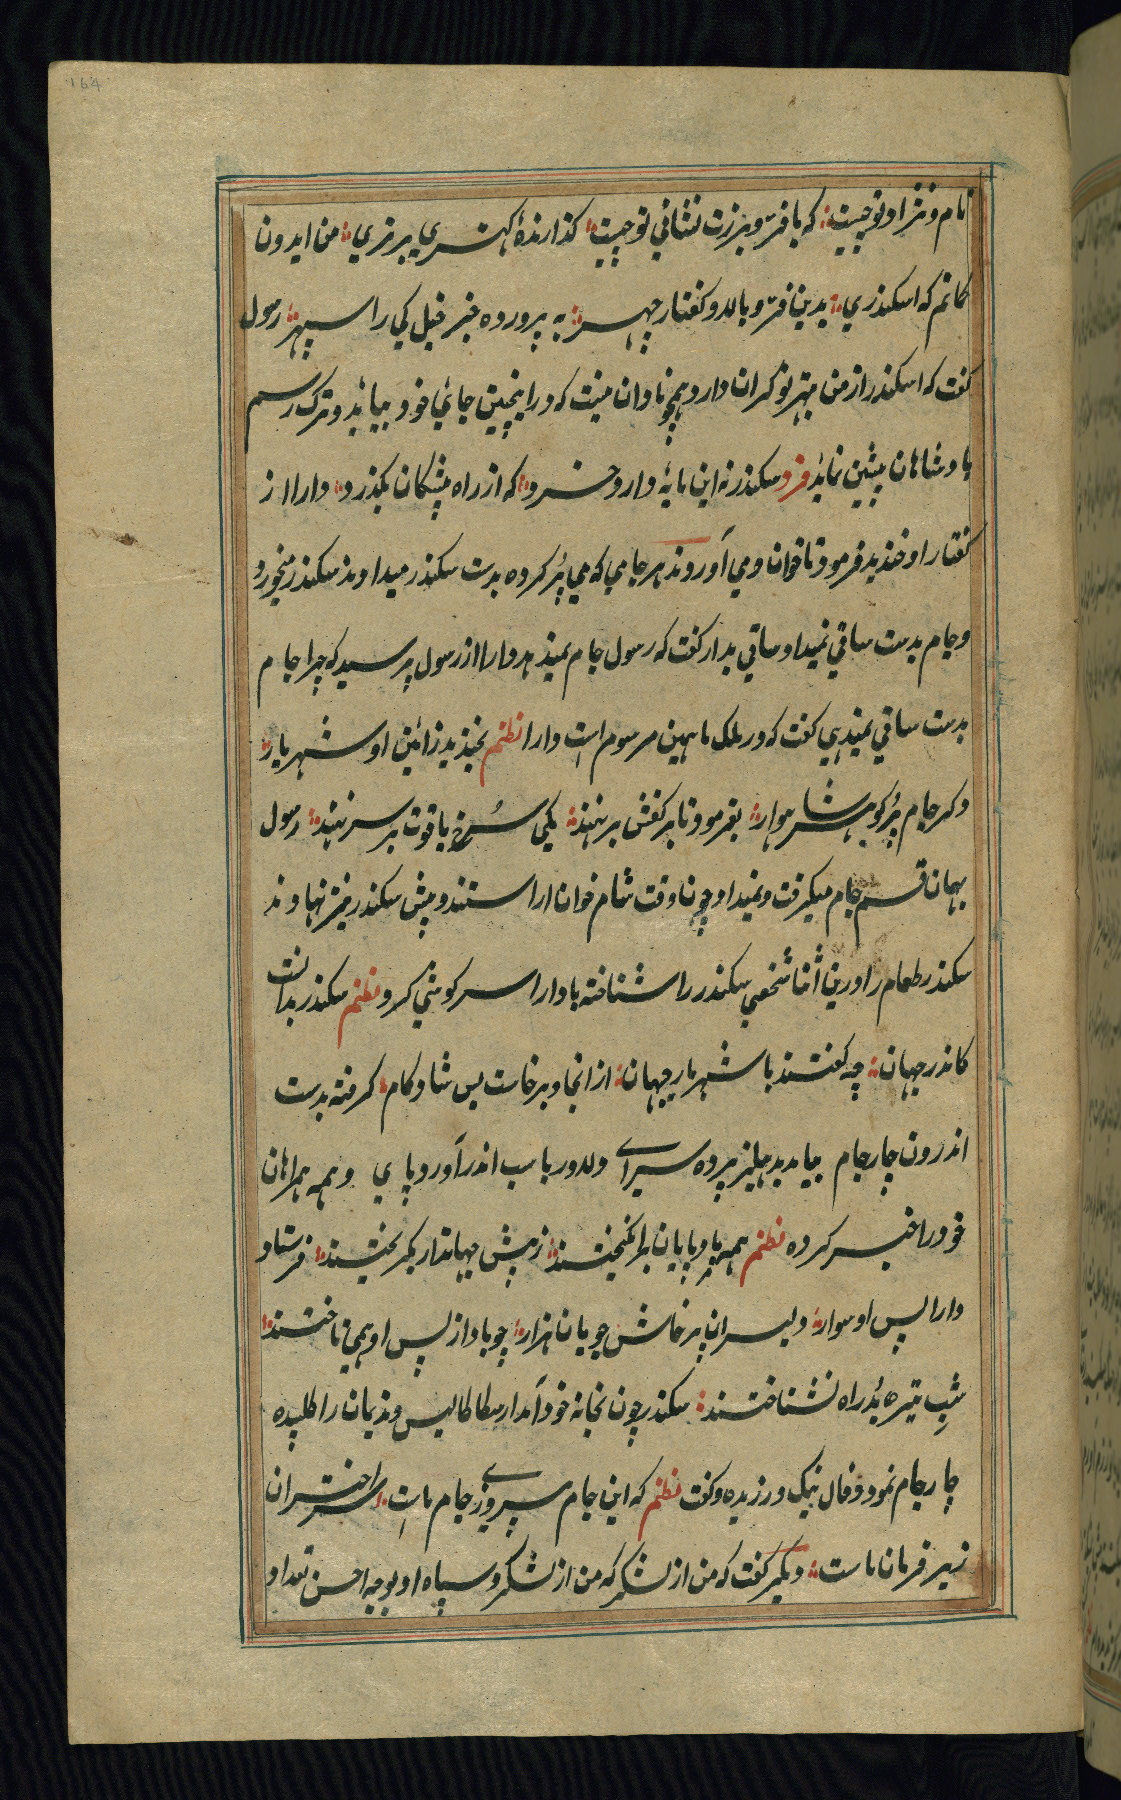 164
نام و نژاد تو چیست؛ که با فرّ و برزت نشانی تو چیست؛ گذارندهٔ کهتری برتری؛ من ایدون
گمانم که اسکندری؛ بدین فرّ و بالا و گفتار چهر؛ به پرورده خبر خیل کی را سپهر؛ رسول
گفت که اسکندر از من بهتر نوکران دارد همچو نادان نیست که در اینچنین جائی خود بیاید و ترک رسم
پادشاهان پیشین نماید فرد سکندر نه این مایه دارد خرد؛ که از راه پیشگان بگذرد؛ دارا از
گفتار او خندید فرمود تا خوان و می آوردند هر جامی که می پُر کرده بدست سکندر میدادند سکندر میخورد
و جام بدست ساقی نمیداد ساقی بدارا گفت که رسول جام نمیدهد دارا از رسول پرسید که چرا جام
بدست ساقی نمیدهی گفت که در ملک ما همین مرسوم است دارا نظم بخندید زائین او شهریار؛
دگر جام پُر گوهر شاهوار؛ بفرمود تا بر کفش بر نهند؛ یکی سُرخ یاقوت بر سر نهند؛ رسول
بهمان قسم جام میگرفت و نمیداد چون وقت شام خوان اراستند و پیش سکندر نیز نهادند
سکندر طعام را درین اثنا شخصی سکندر را شناخته با دارا سرگوشی کرد نظم سکندر بدانست
کاندر جهان؛ چه گفتند با شهریار جهان؛ از انجا برخاست بس شادکام؛ گرفته بدست
اندرون چار جام بیامد بدهلیز پرده سرای و باسب اندر آورد پای و همه همراهان
خود را خبر کرده نظم همه بادپایان برانگیختند؛ ز پیش جهاندار بگریختند؛ فرستاد
دارا پس او سوار؛ دلیران پرخاش جویان هزار؛ چو باد از پس او همی تاختند؛
شب تیره بُد راه نشناختند؛ سکندر چون بخانه خود آمد ارسطاطالیس و ندیمان را طلبیده
چار جام نمود و فال نیک ورزیده و گفت نظم که این جام پیروزی جام ماست؛ سر اختران
زیر فرمان ماست؛ دیگر گفت که من از لشکر که من از لشکر و سپاه او بوجه احسن تعداد